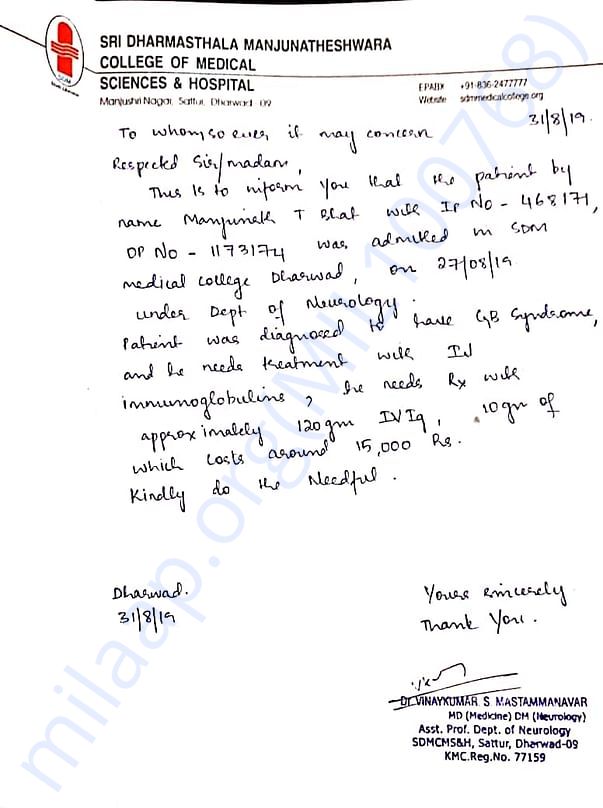 SRI DHARMASTHALA MANJUNATHESHWARA
COLLEGE OF MEDICAL
SCIENCES & HOSPITAL
Manjushri Nagar, Sattur, Dharwad - 09
EPABX +91-836-2477777
Website sdmmedicalcollege.org
SDM
31/8/19.
To whomsoever it may concern
Respected Sir/madam,
This is to inform you that the patient by
name Manjunath T Bhat with IP No - 468171,
OP No - 1173174 was admitted in SDM
medical college Dharwad, on 27/08/19
under Dept of Neurology.
Patient was diagnosed to have GB Syndrome,
and he needs treatment with IV
immunoglobulins, he needs Rx with
approximately 120gm IVIg, 10gm of
which costs around 15,000 Rs.
Kindly do the Needful.
Dharwad.
31/8/19
Yours sincerely
Thank You.
Dr. VINAYKUMAR. S. MASTAMMANAVAR
MD (Medicine) DM (Neurology)
Asst. Prof. Dept. of Neurology
SDMCMS&H, Sattur, Dharwad-09
KMC.Reg.No. 77159
milaap.org(MIL100768)